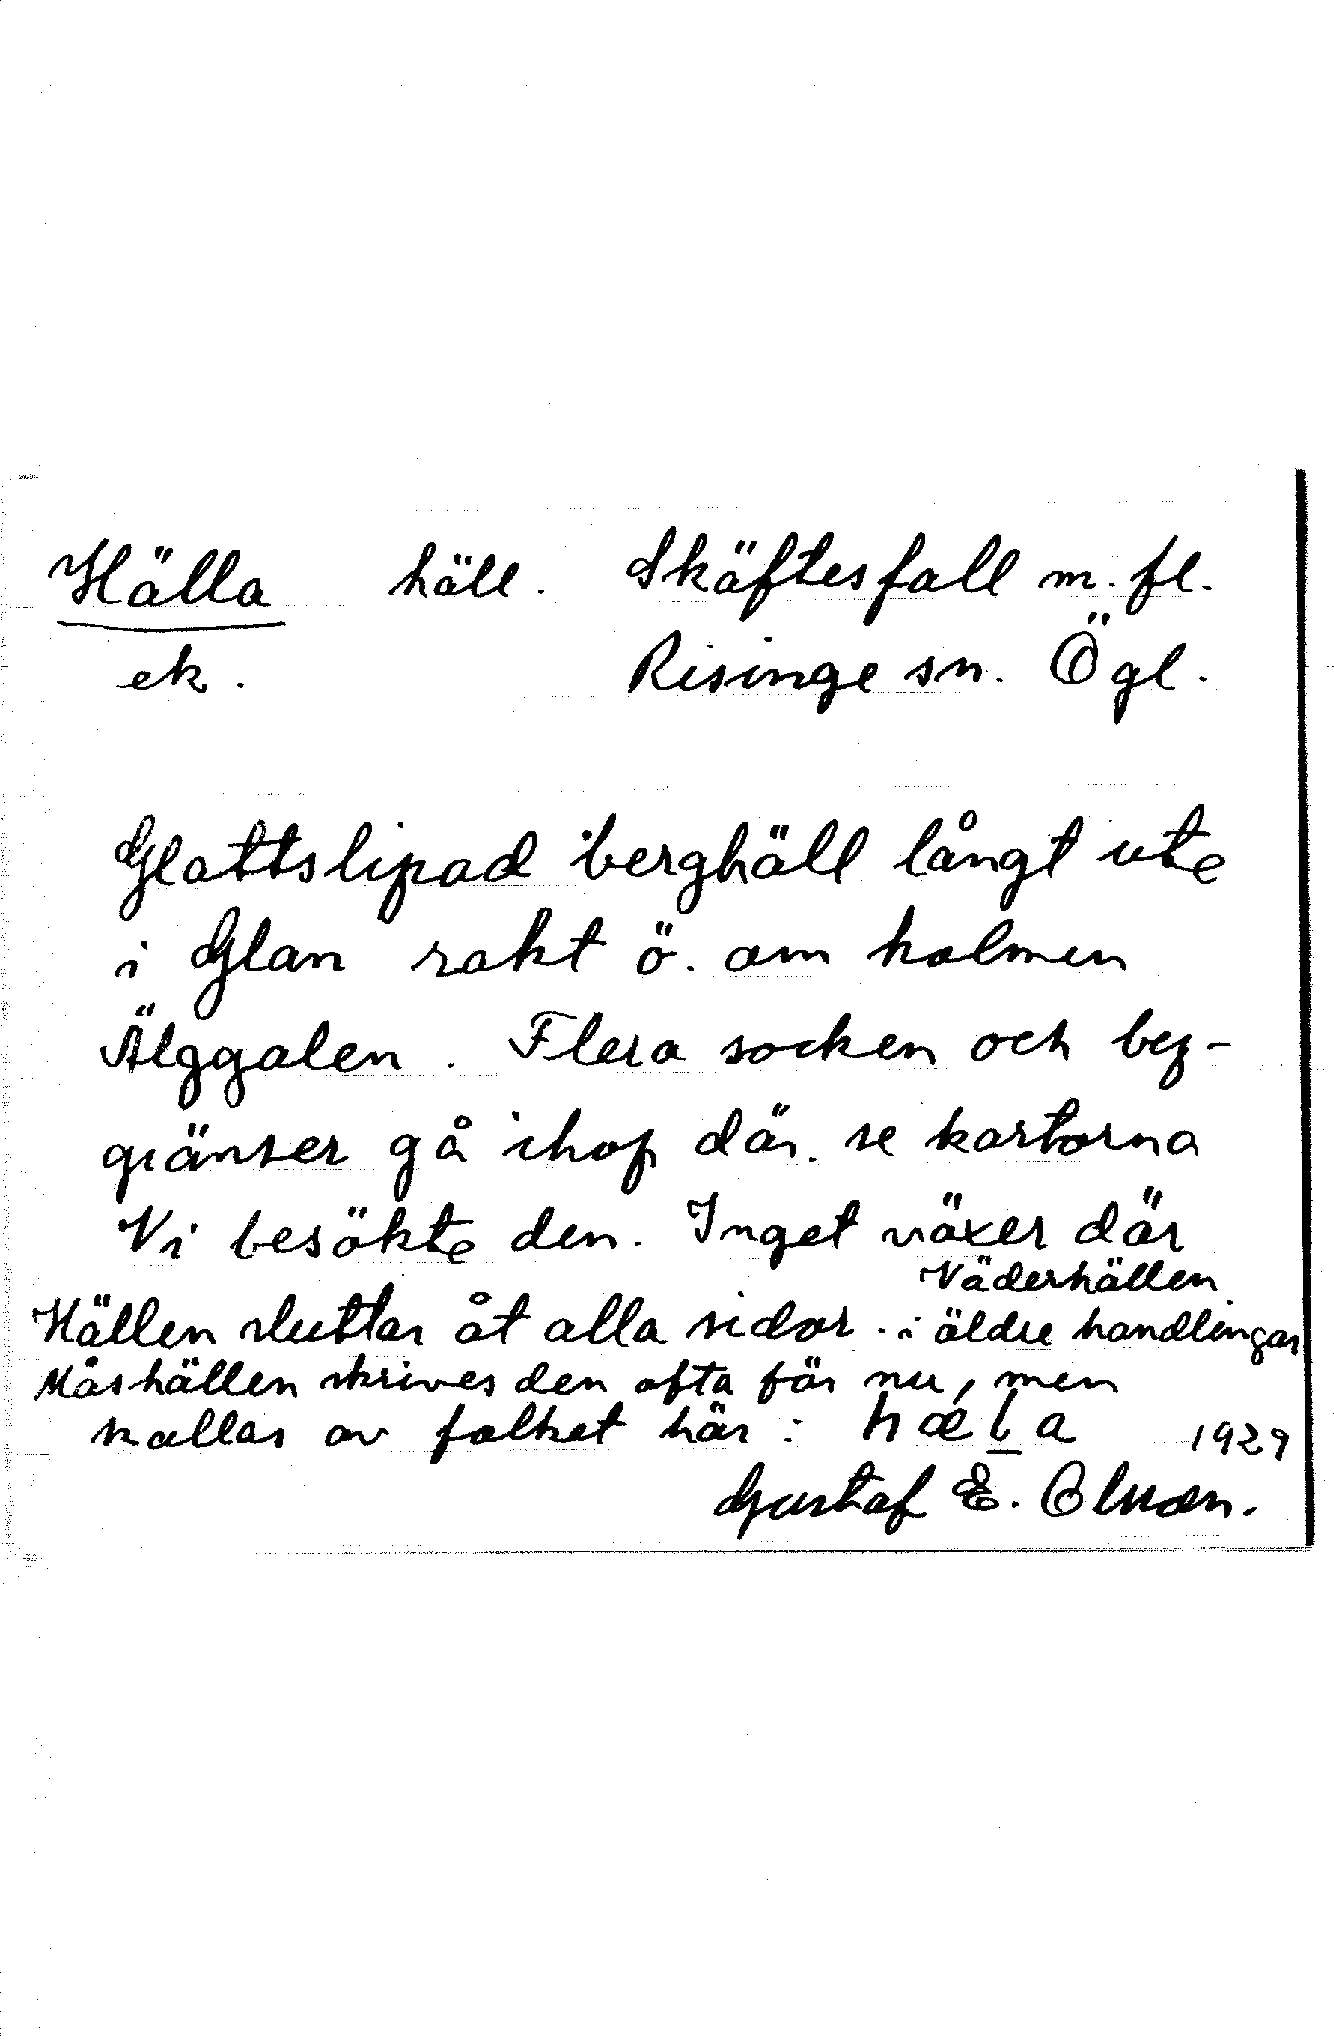 Hälla häll. Skäftesfall m. fl.
ek. Risinge sn. Ögl.
Glattslipad berghäll långt ute
i Glan rakt ö. om holmen
Älggalen. Flera socken och beg-
gränser gå ihop där. se kartorna
Vi besökte den. Inget växer där
Väderhällen
Hällen sluttar åt alla sidor. i äldre handlingar
Måshällen skrives den ofta för nu, men
kallas av folket här: hæla 1929
Gustaf E. Olsson.